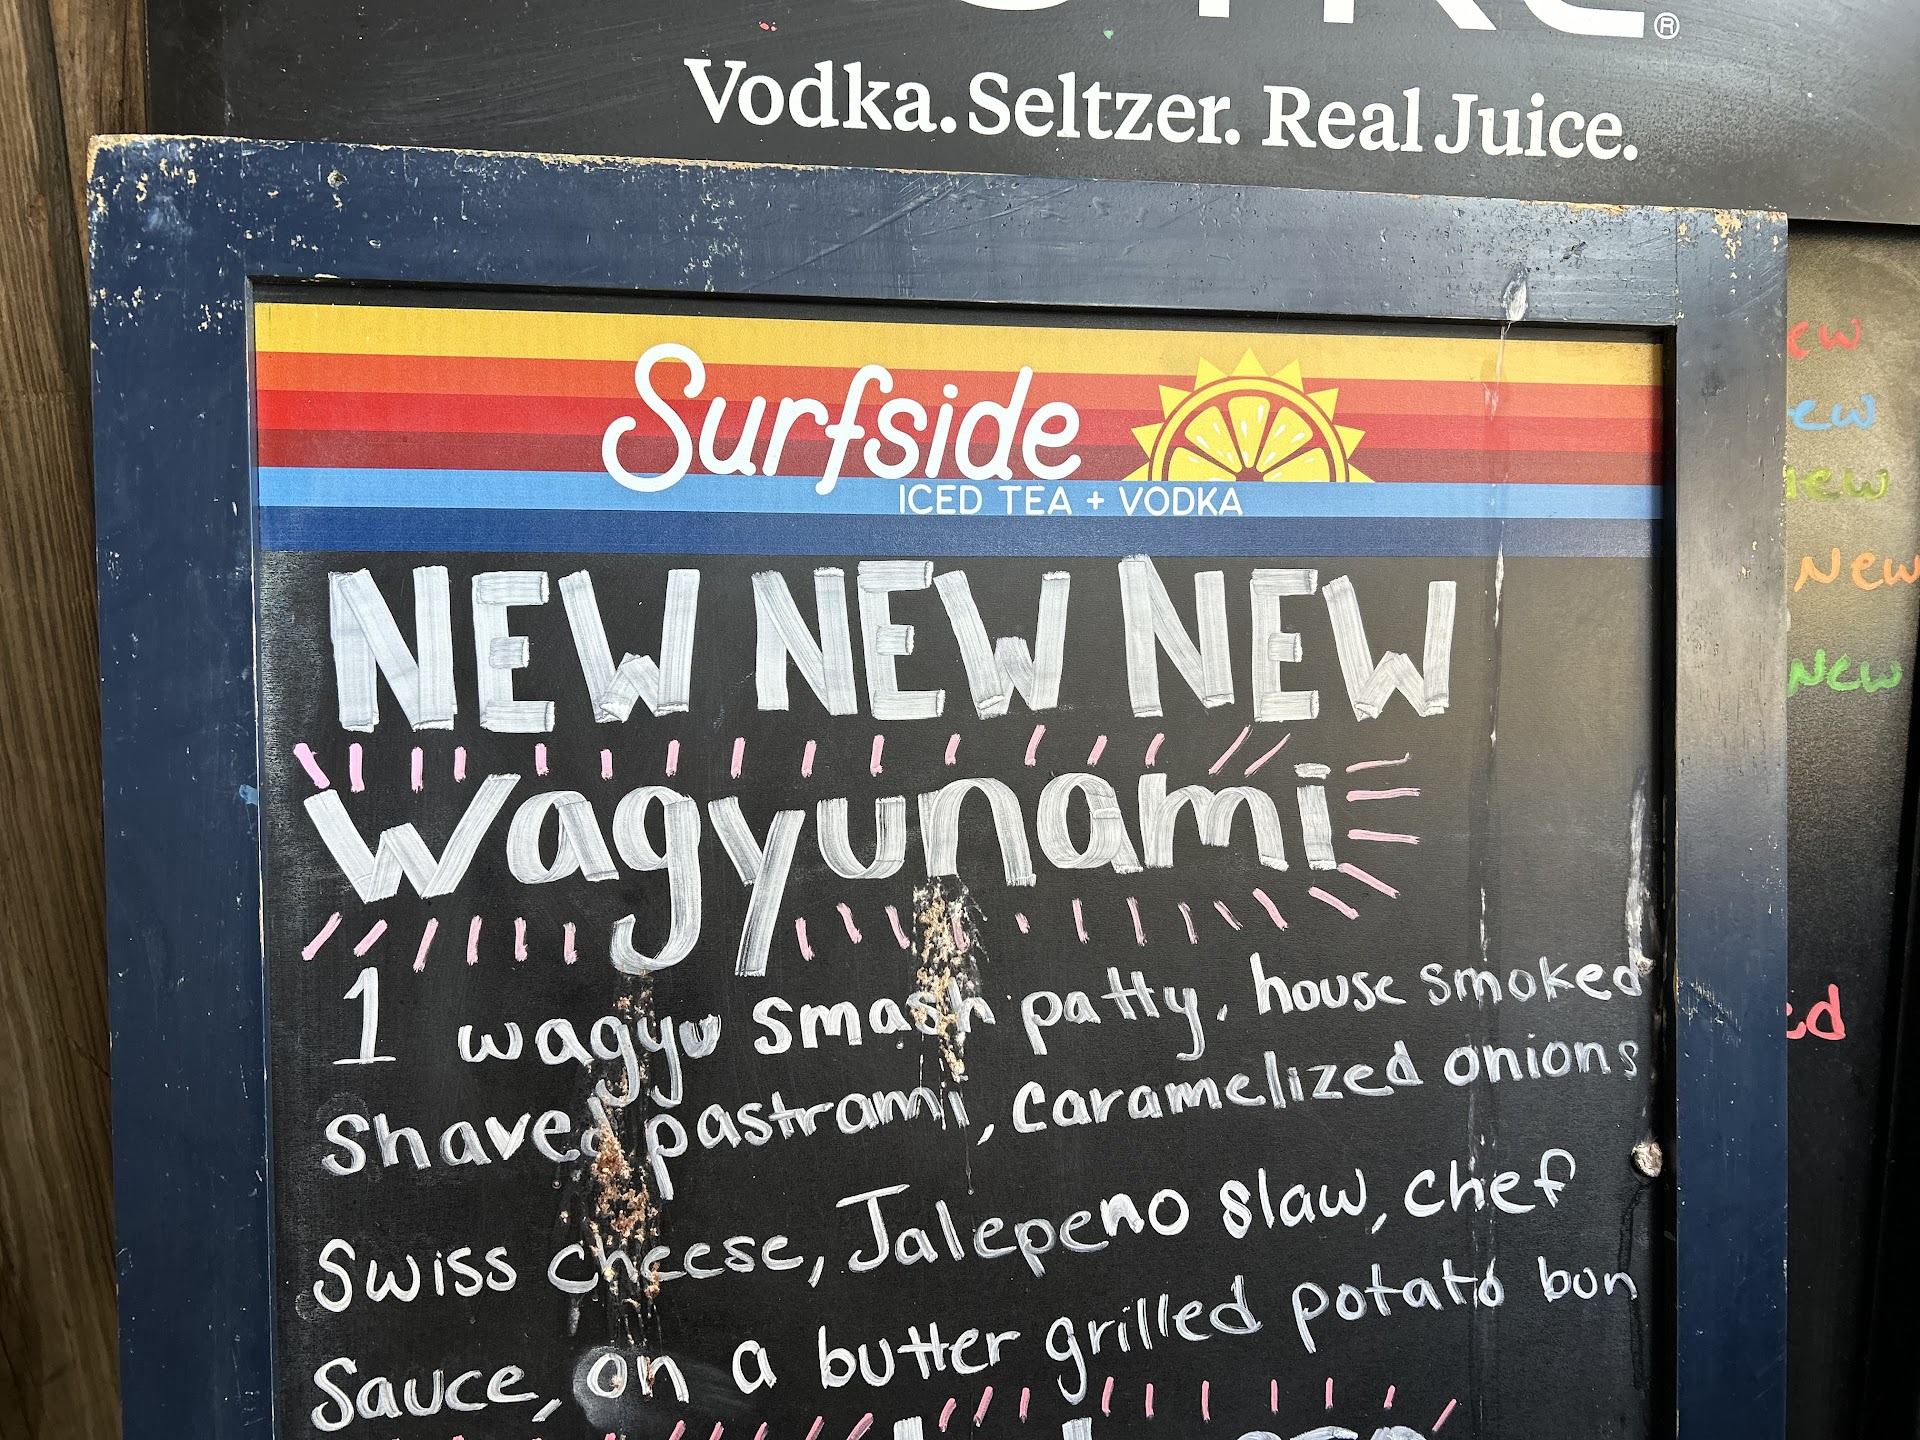 Vodka. Seltzer. Real Juice.
Surfside
ICED TEA + VODKA
NEW NEW NEW
wagyunami
1 wagyu smash patty, house smoked
shaved pastrami, caramelized onions
Swiss cheese, Jalepeno slaw, chef
Sauce, on a butter grilled potato bun
New
New